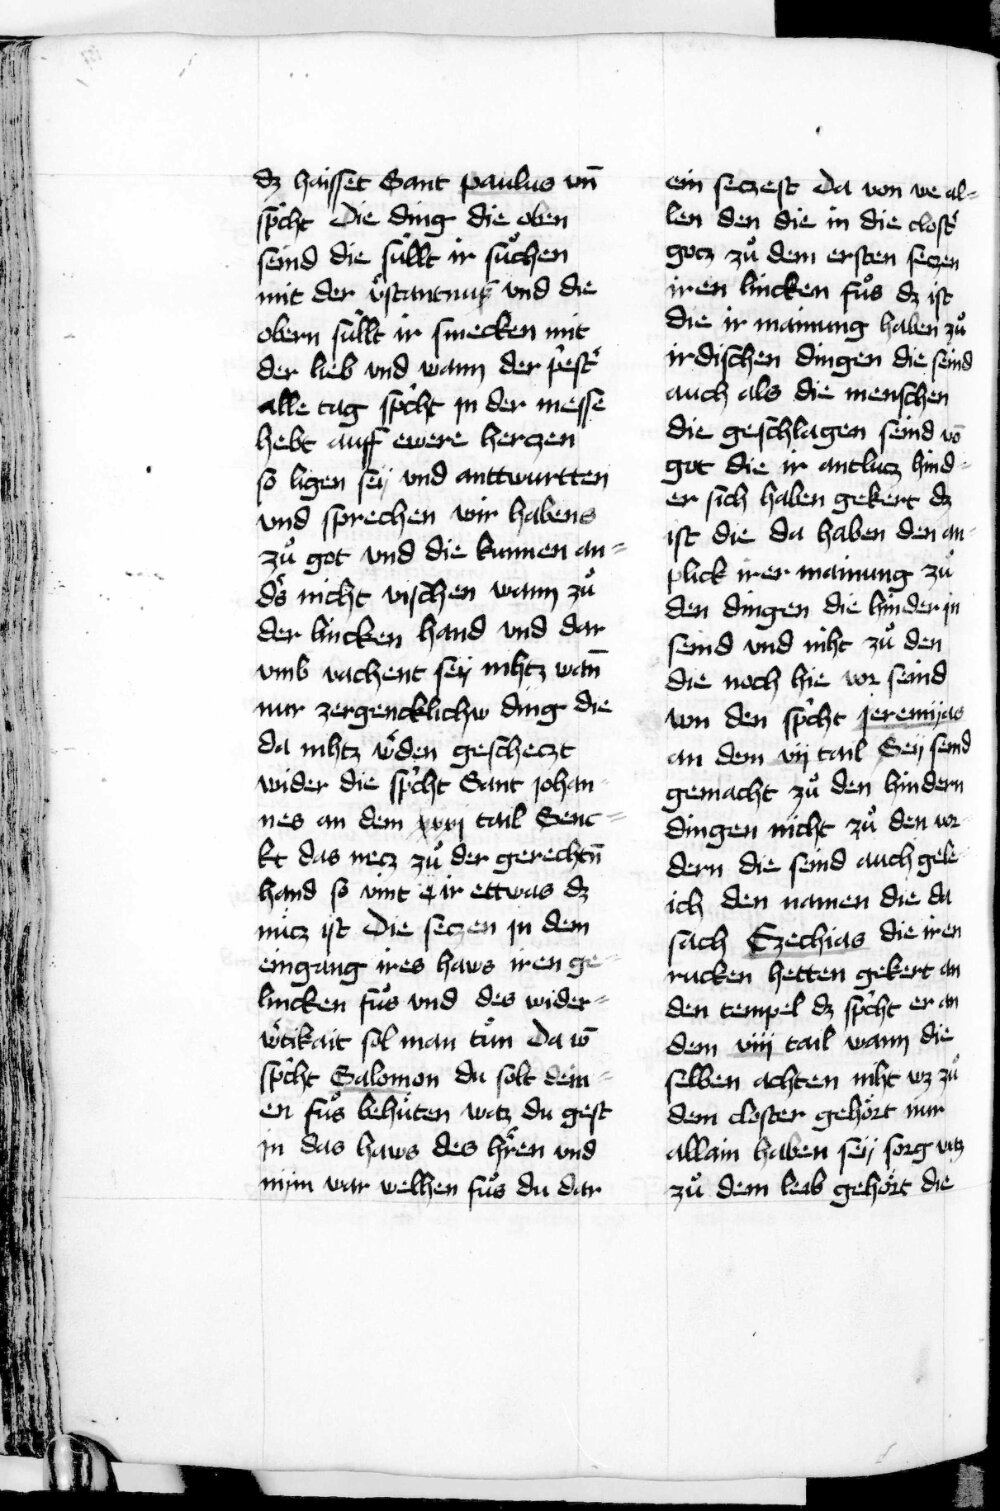 dz haisset Sant paulus vn̄
sp̄cht Die ding die oben
seind die süllt ir sůchen
mit der v̓stantnuß vnd die
obern süllt ir smecken mit
der lieb vnd wann der p̓est̓
alle tag sp̓cht jn der messe
hebt auff ewere herczen
so ligen seÿ vnd anttwurtten
vnd sprechen wir habens
zů got vnd die kunnen an=
d̓s nicht vischen wann zů
der lincken hand vnd dar
vmb vachent seÿ nihtz wan̄
nur zergencklichw ding die
da nihtz w̓den gescheczt
wider die sp̓cht Sant johan
nes an dem xxj tail Senc=
kt das necz zů der gerechtn̄
hand so vint ir ettwas dz
nücz ist Die seczen jn dem
eingang ires haws iren ge=
lincken fůs vnd des wider=
w̓tikait sol man tůn Da vō
sp̓cht Salomon du solt dein=
en fůs behüten watz du gest
jn das haws des h̓ren vnd
nÿm war welhen fůs du dar
ein seczest Da von we al=
len den die in die clost̓
gotz zů dem ersten seczen
iren lincken fůs dz ist
die ir mainung haben zů
irdischen dingen die seind
auch als die menschen
die geschlagen seind vō
got die ir antlucz hind=
er sich haben gekert dz
ist die da haben den an=
plick irer mainung zů
den dingen die hinder jn
seind vnd niht zů den
die noch hie vor seind
von den sp̓cht jeremÿas
an dem vij tail Seÿ seind
gemacht zů den hindern
dingen nicht zů den vor
dern die seind auch gele
ich den namen die da
sach Ezechias die iren
rucken hetten gekert an
den tempel dz sp̓cht er an
dem viij tail wann die
selben achten niht wz zů
dem closter gehört nur
allain haben seÿ sorg watz
zů dem leib gehört die